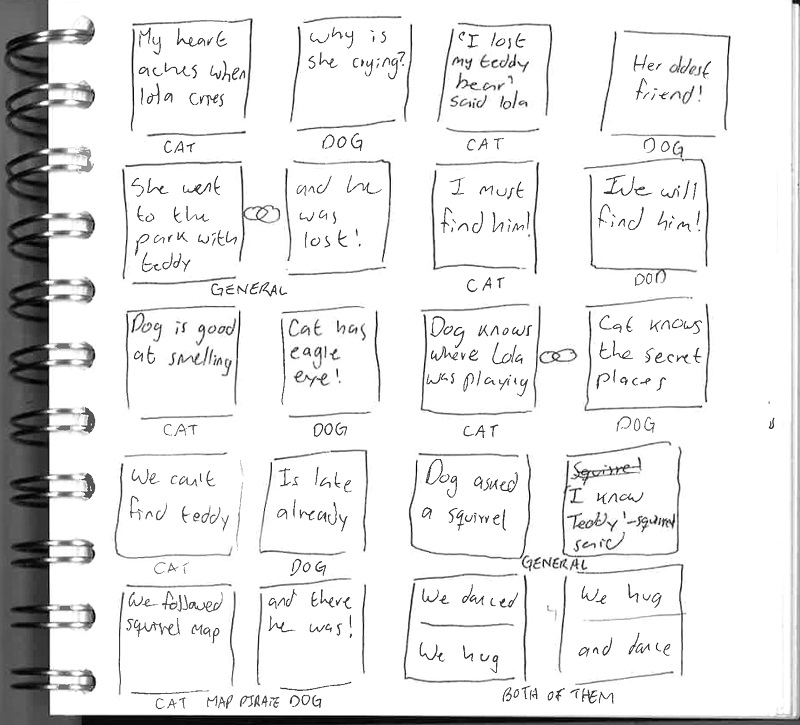 My heart
aches when
lola cries
CAT
why is
she crying?
DOG
"I lost
my teddy
bear"
said lola
CAT
Her oldest
friend!
DOG
She went
to the
park with
teddy
and he
was
lost!
GENERAL
I must
find him!
CAT
We will
find him!
DOD
Dog is good
at smelling
CAT
Cat has
eagle
eye!
DOG
Dog knows
where Lola
was playing
CAT
Cat knows
the secret
places
DOG
We can't
find teddy
CAT
Is late
already
DOG
Dog asked
a squirrel
Squirrel
I know
Teddy'-squirrel
said
GENERAL
We followed
squirrel map
CAT
and there
he was!
MAP PIRATE DOG
We danced
We hug
We hug
and dance
BOTH OF THEM